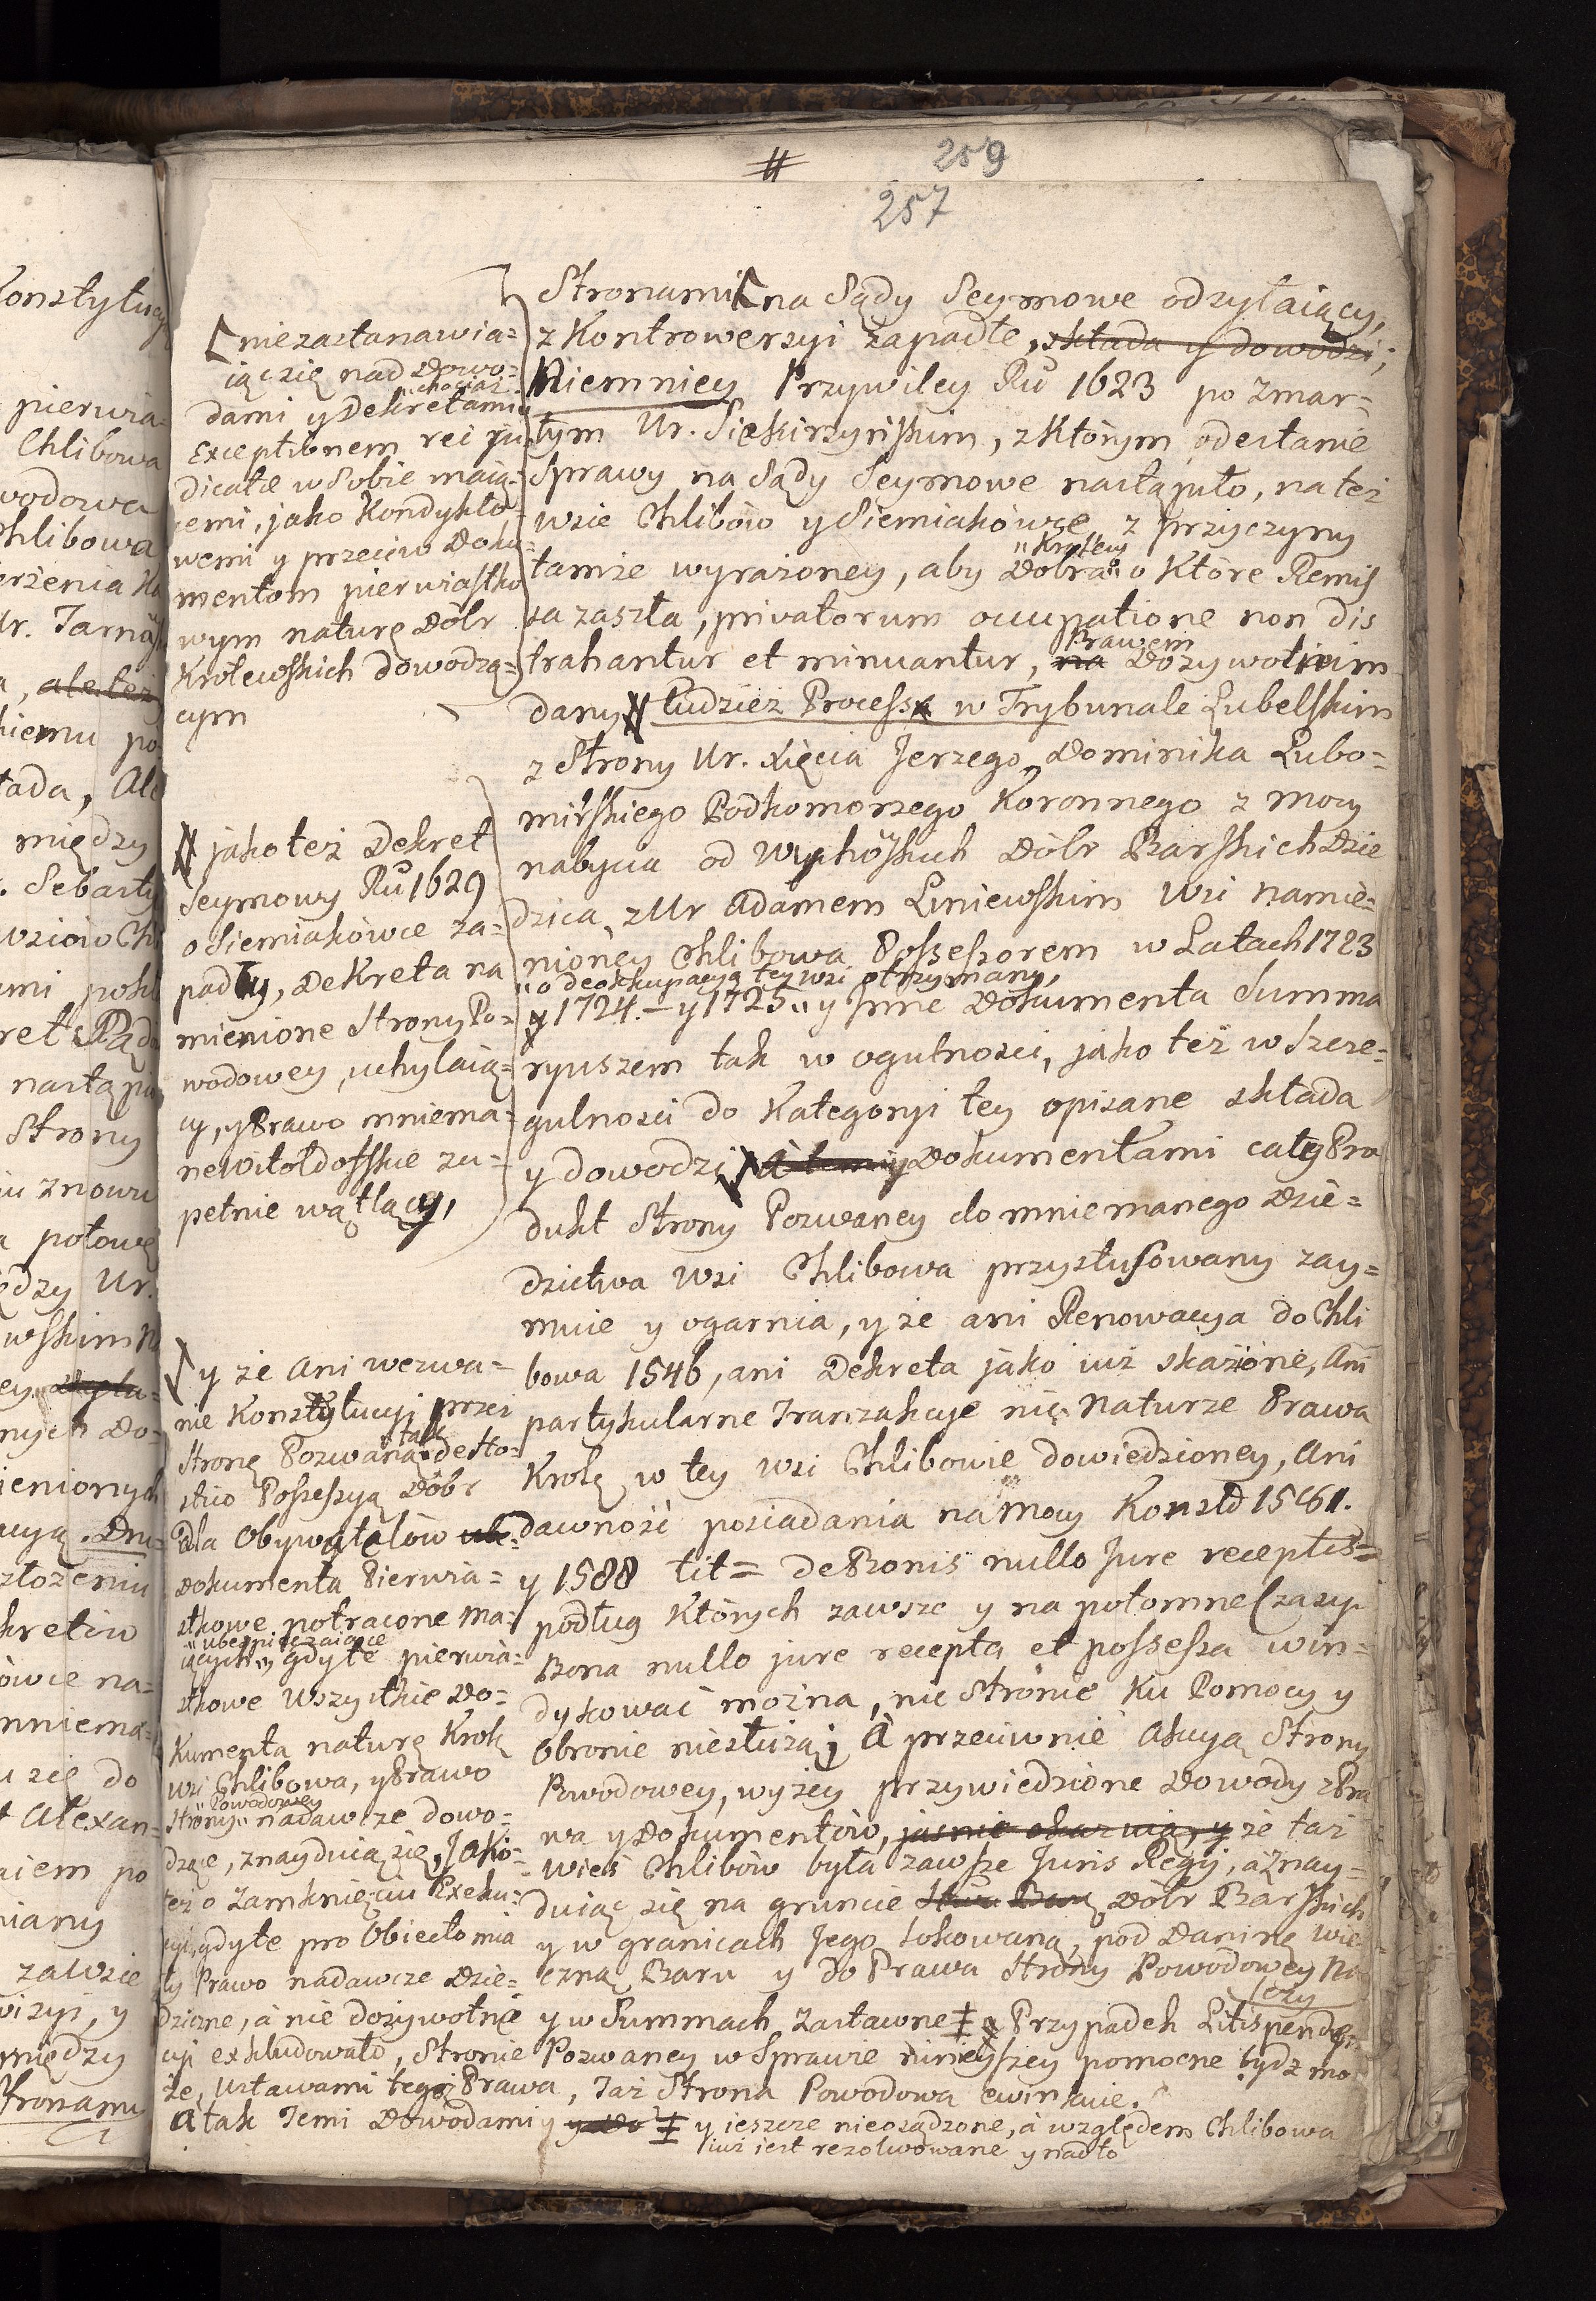 259
257
Stronami na Sądy Seymowe odzyłaiący,
z Kontrowersyi zapadłe, składa y dowodzi;
Niemniey Przywiley Ru 1623 po zmar-
łym Ur. Siekirzyńskim, z którym odesłanie
Sprawy na Sądy Seymowe nastąpiło, na też
wsie Chlibów y Siemiakówce z przyczyny
tamże wyrażoney, aby Dobra "Krolew o które Remis
sa zaszła, privatorum occupatione non dis
trahantur et minuantur, na Prawem Dożywotnim
dany # tudzież Process w Trybunale Lubelskim
z Strony Ur. Xięcia Jerzego Dominika Lubo=
mirskiego Podkomorzego Koronnego z mocy
nabycia od Wyhoskich Dóbr Barskich Dzie
dzica, z Ur Adamem Liniewskim wsi namie-
nioney Chlibowa Possessorem w Latach 1723
"o deokkupacyą tey wsi otrzymany,
y 1724.— y 1725 " y Inne Dokumenta Summa
ryuszem tak w ogulności, jako też w szcze=
gulności do Kategoryi tey opisane składa
y dowodzi, A temi Dokumentami cały Pro
dukt Strony Pozwaney do mniemanego Dzie=
dzictwa wsi Chlibowa przystusowany zay=
muie y ogarnia, y że ani Renowacya do Chli
bowa 1546, ani Dekreta jako iuż skażone, Ani
partykularne Tranzakcye nic Naturze Prawa
Krolę w tey wsi Chlibowie dowiedzioney, Ani
dawność posiadania na mocy Konstd 1561.
y 1588 tit= De Bonis nullo Jure receptis=
podług których zawsze y na potomne Czasy
Bona nullo jure recepta et possessa win=
dykować można, nic Stronie ku Pomocy y
Obronie niesłużą; A przeciwnie Akcyą Strony
Powodowey, wyżey przywiedzione Dowody z Pra
wa y Dokumentów, jasnie okazuią, y że taż
wieś Chlibów była zawsze Juris Regij, a znay=
duiąc się na gruncie Dóbr Barskich
y w granicach Jego lokowana, pod Daninę wie
czną Baru y do Prawa Strony Powodowey Na
leży
y w Summach Zastawne ‡ a Przypadek Litispende
Pozwaney w Sprawie ninieyszey pomocne bydz mo
że, Ustawami tegoż Prawa, Taż Strona Powodowa ewinkuie.
A tak Temi Dowodami y y Do ‡ y ieszcze nieosądzone, á względem Chlibowa
iuż jest rezolwowane y nadto
niezastanawia=
iąc się nad Dowo=
dami y Dekretami chociaż
Exceptionem rei ju
dicatæ w Sobie maią=
cemi, jako Kondykto=
wemi y przeciw Doku=
mentom pierwiastko
wym naturę Dóbr
Królewskich dowodzą=
cym
# jako też Dekret
Seymowy Ru 1629
o Siemiakówce za=
padły, Dekreta na
mienione Strony Po=
wodowey, uchylaią=
cy, y Prawo mniema=
ne Witołdowskie zu=
pełnie wątlący,
y że Ani wezwa=
nie Konstytucyi przez
Stronę Pozwaną, tak de sto=
sttio Possessyą Dóbr
dla Obywatelów ub=
Dokumenta Pierwia=
stkowe potracone ma=
"ubespieczaiące
iących " gdyle pierwia=
stkowe Wszystkie Do=
kumenta naturę Krolę
wsi Chlibowa, y Prawo
Strony "Powodowey" nadawcze dowo=
dzące, znayduią się, Jako
też o Zamknięciu Exeku=
cyi, gdyle pro Objecto mia
ły Prawo nadawcze Dzie=
dziczne, á nie dożywotnie
cyi exkludowało, Stronie
Konstytucy
pierwia=
Chlibowa
wodowa
Chlibowa
Ur. Tarna
, ale też
kiemu po
między
Sebasty
Strony
iu znowu
a połowę
ędzy Ur.
ienionych
złożeniu
kretiu
ówce na=
mniema=
u się do
t Alexan=
aiem po
niany
zawsze
wizyi, y
między
Stronami